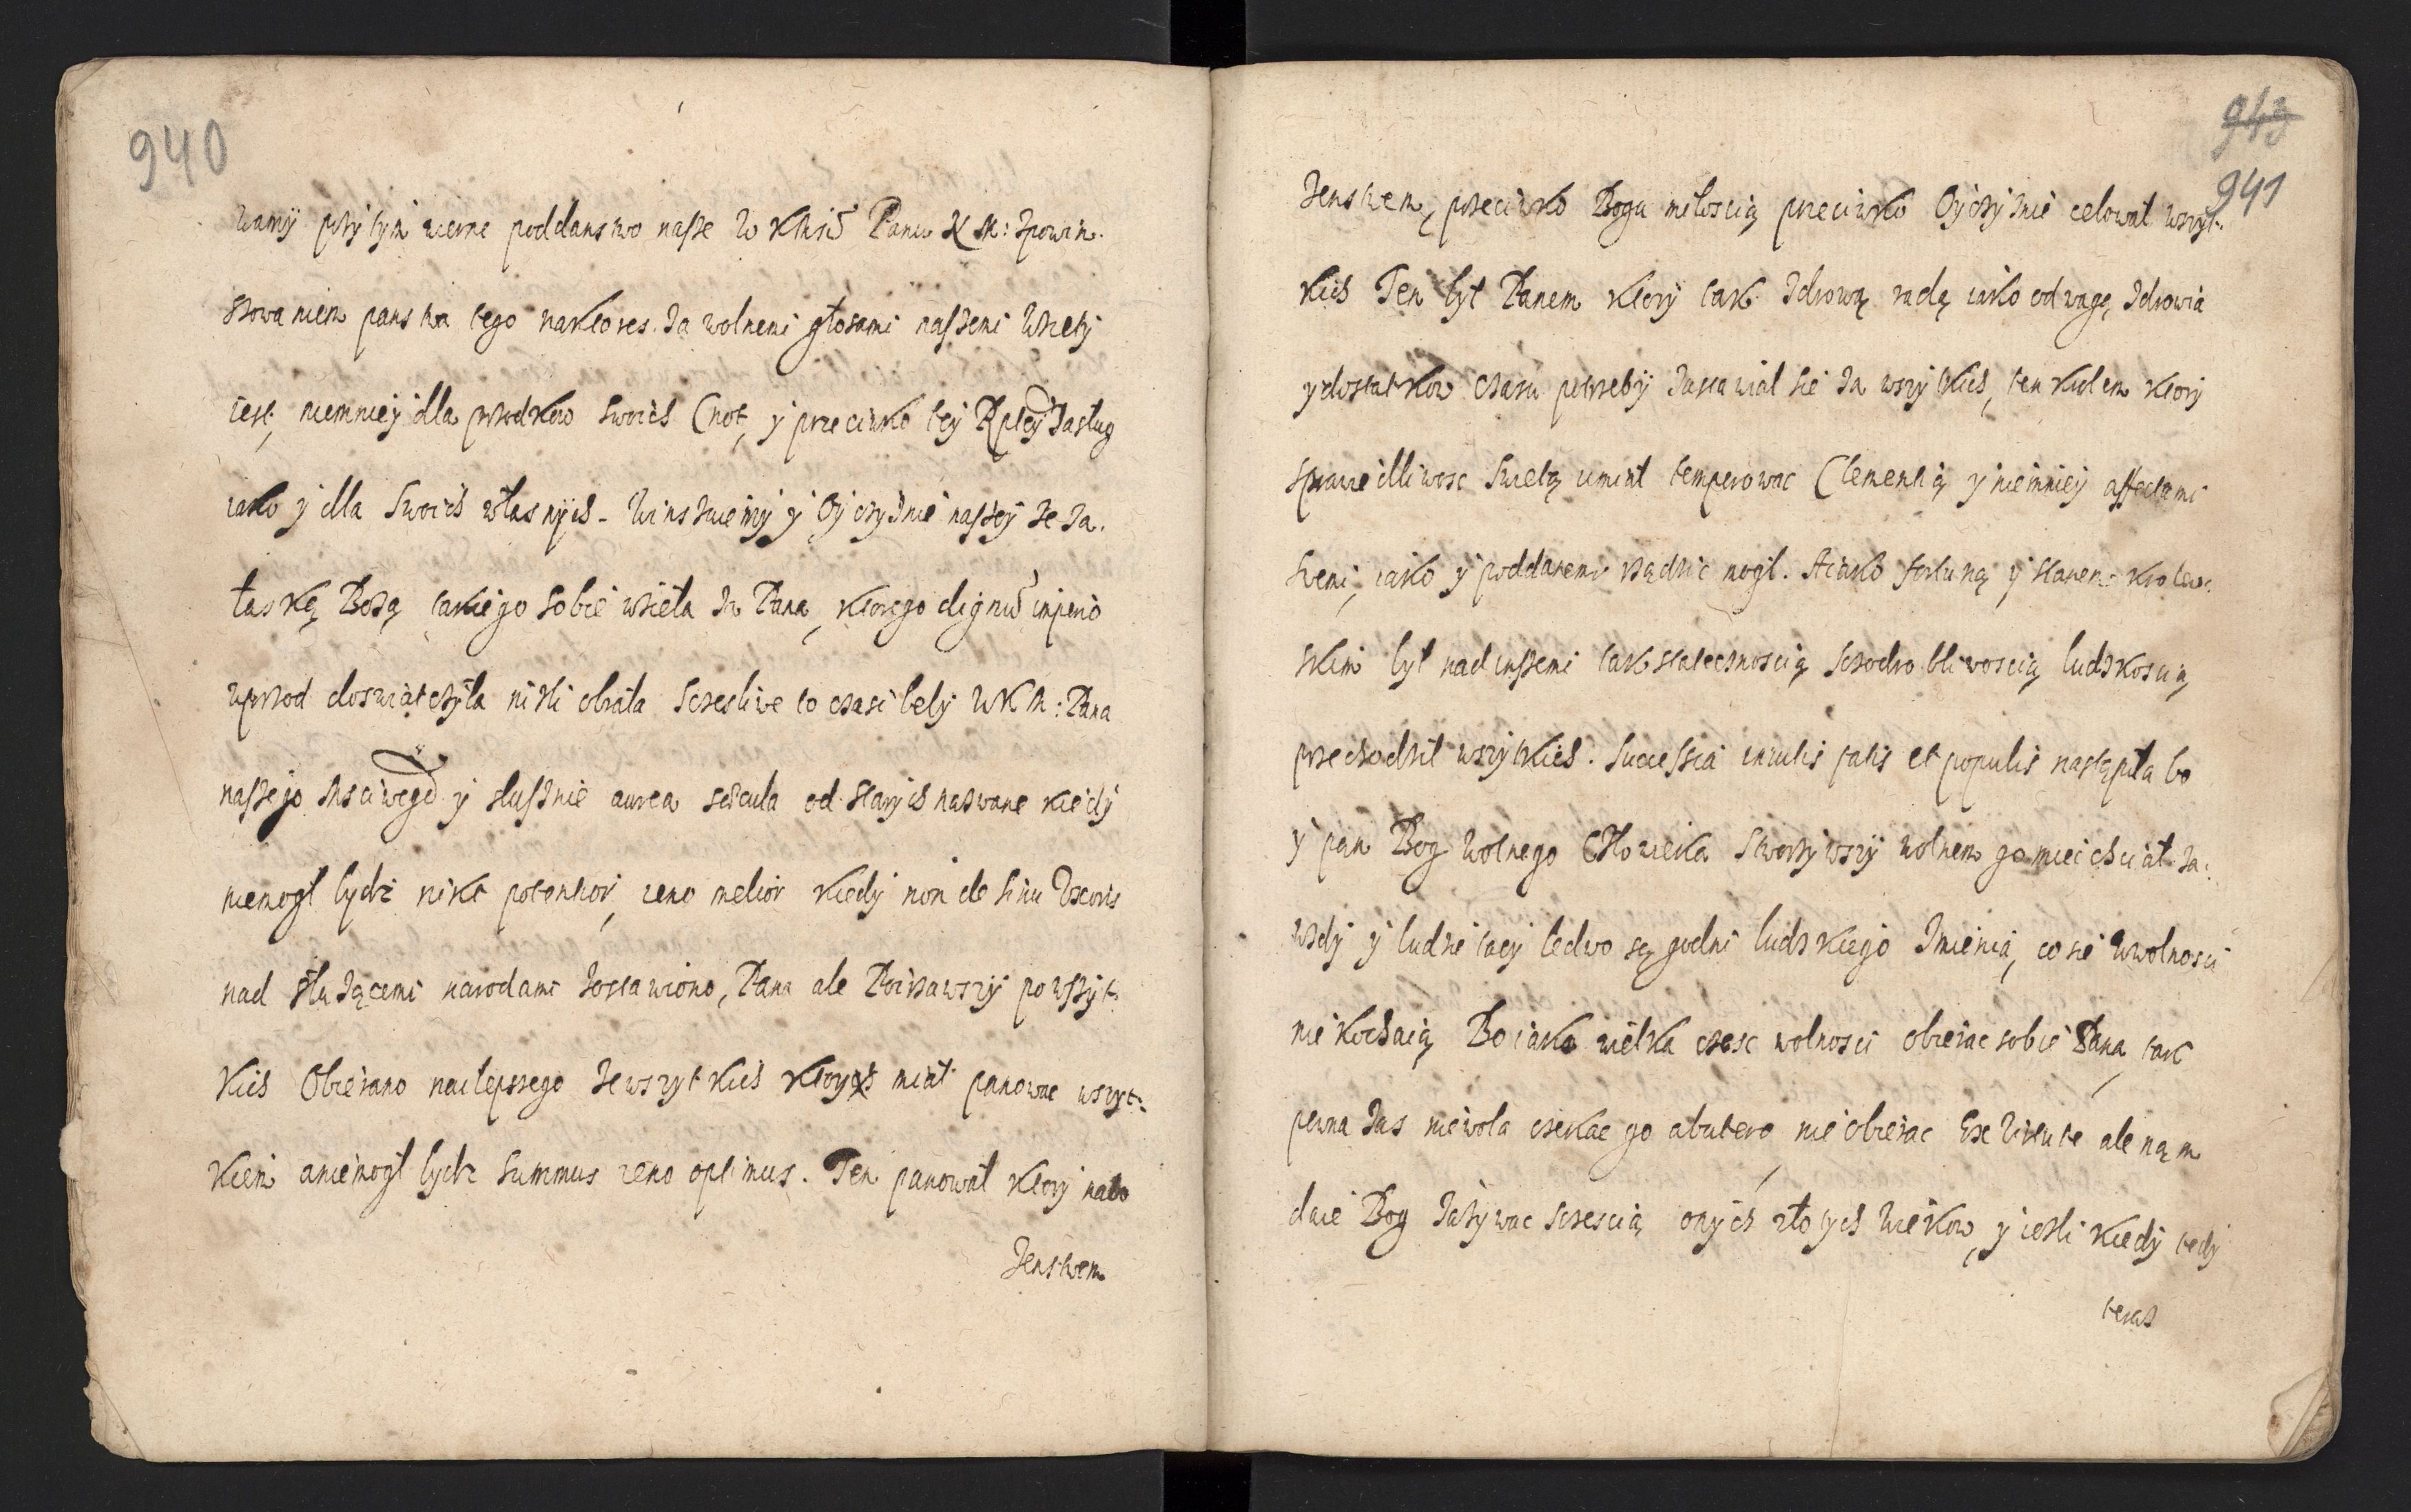 940
wamy przy tym wierne poddanstwo nasze W KMsci Panu N M: zpowin.
szowaniem panstwa tego naktores. za wolnemi głosami naszemi wziety
iest, niemniey dla przodkow swoich Cnot, y przeciwko tey Rptey zasług
iako y dla swoich własnych. Winszuiemy y Oyczyznie naszey ze za.
łaską Bozą takiego sobie wzieła za Pana, ktorego dignu imperio
wprzod doswiatczyła nizli obrała Sczesliwe to czasi beły WKM: Pana
naszego Msciwego y słusznie aurea secula od starych nazwane kiedy
niemogł bydz nikt potentior, ieno melior kiedy non de sinu Uxoris
nad słuzącemi narodami zostawiono, Pana ale Poirzawszy po wszyt.
kich Obierano nailepszego ze wszytkich ktory miał panowac wszyt:
kiem aniemogł bydz summus ieno optimus. Ten panował ktory nabo
zenstwem
943
941
zenstwem, przeciwko Bogu miłoscią przeciwko Oyczyznie celował wszyt.
kich Ten był Panem ktory tak zdrową radą iako odwagą zdrowia
y dostatkow czasu potrzeby zastawiał sie za wszytkich, ten krolem ktory
sprawiedliwosc swietą umiał temperowac Clementią y niemniey affectami
swemi, iako y poddanemi rządzic mogł. A iako fortuną y stanem krolew:
skim był nad inszemi tak statecznoscią sczodrobliwoscią ludzkoscią
przechodził wszytkich. Successia invitis fatis et populis nastąpiła bo
y pan Bog wolnego Człowieka stworzywszy wolnem go miec chciał za:
wzdy y ludzie tacy ledwo są godni ludzkiego Imienia, co sie w wolnosci
nie kochaią Bo iako wielka czesc wolnosci obierac sobie Pana, tak
pewna zas niewola czekac go ab utero, nie obierac Ex Virtute ale nąm
daie Bog zazywac sczescia onych złotych wiekow, y iesli kiedy tedy
teraz